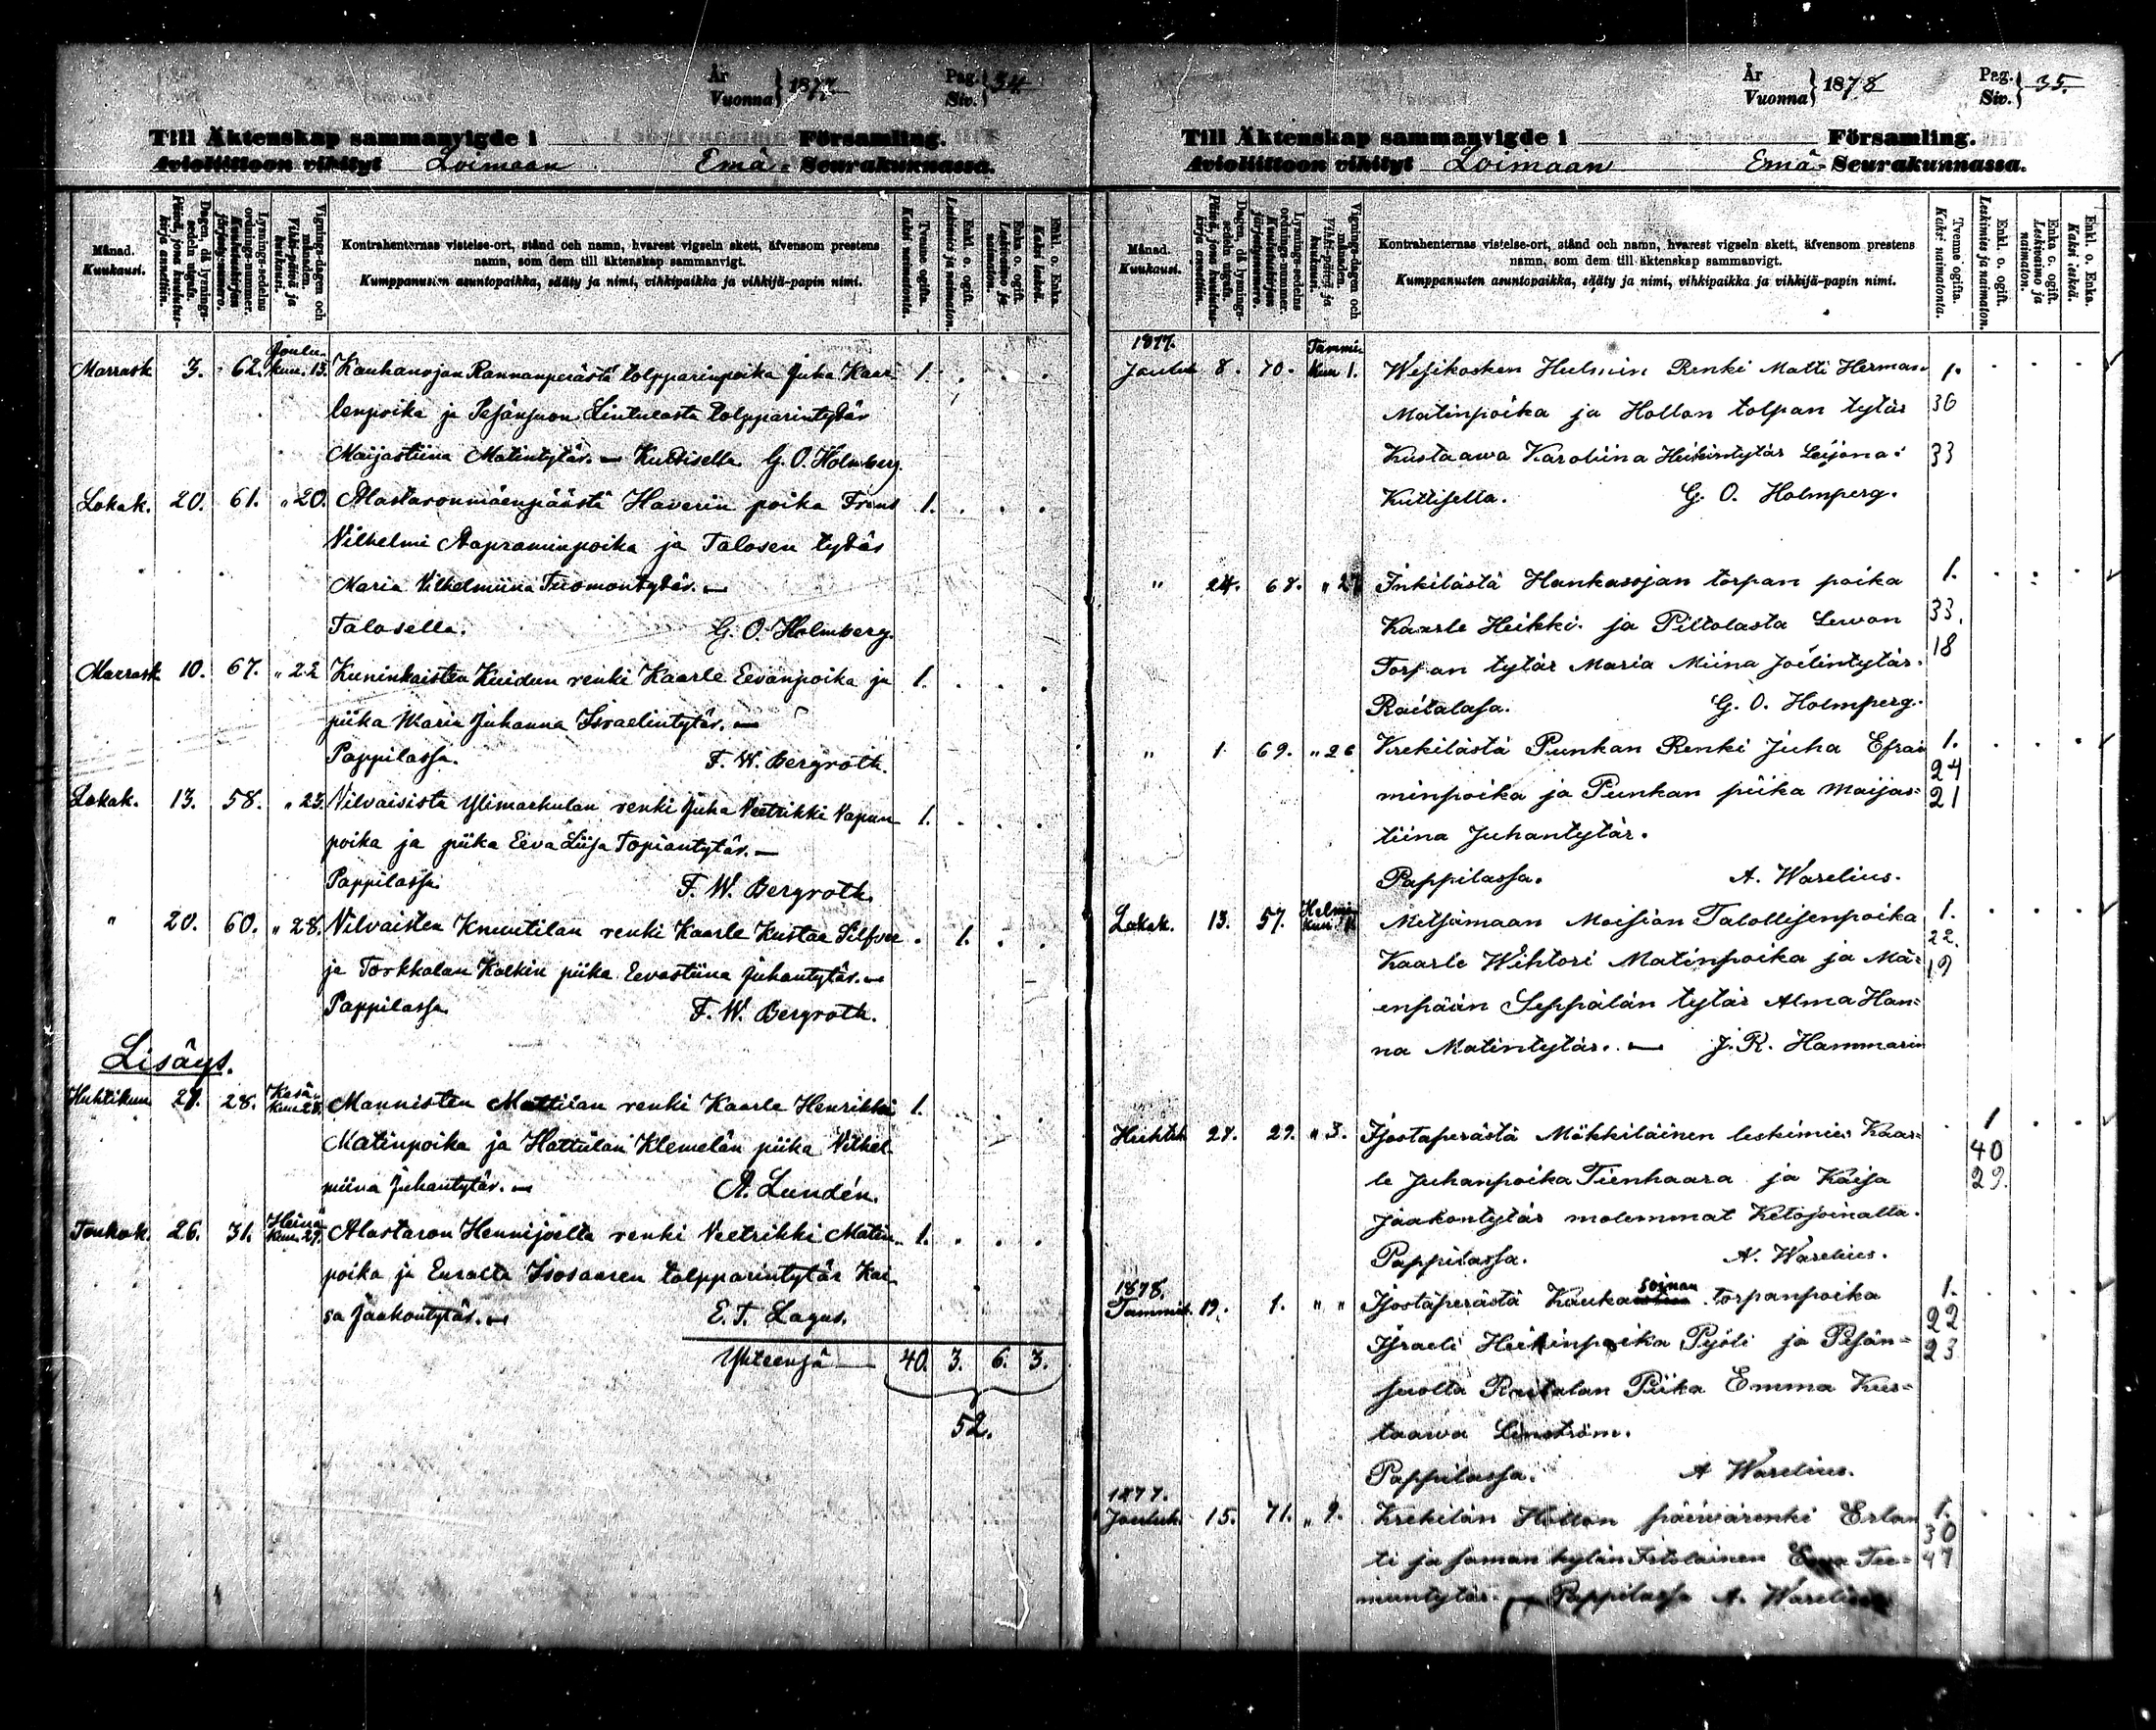 År
Vuonna } 1877
Pag.
Siv. } 34
Till Äktenskap sammanvigde i Församling.
Avioliittoon vihityt Loimaan Emä- Seurakunnassa.
Månad.
Kuukausi.
Dagen, då lysnings-sedeln utgafs.
Päivä, jona kuulutus-kirja annettiin.
Lysnings-sedelns ordnings-nummer.
Kuulutuskirjan järjestysnumero.
Vignings-dagen och månaden.
Vihki-päivä ja kuukausi.
Kontrahenternas vistelse-ort, stånd och namn, hvarest vigseln skett, äfvensom prestens
namn, som dem till äktenskap sammanvigt.
Kumppanusten asuntopaikka, sääty ja nimi, vihkipaikka ja vihkijä-papin nimi.
Tvenne ogifta.
Kaksi naimatonta.
Enkl. o. ogift.
Leskimies ja naimaton.
Enka o. ogift.
Leskivaimo ja naimaton.
Enkl. o. Enka.
Kaksi leskeä.
Marrask 3. 62. Joulu-kuu. 13. Kauhanojan Rannanperästä tolpparinpoika Juha Kaar- 1.
lenpoika ja Pesänsuon Lintulasta tolpparintytär
Maijastiina Matintytär. — Kuttisella G. O. Holmberg.
Lokak. 20. 61. " 20. Alastaronmäenpäästä Haverin poika Frans 1.
Vilhelmi Aapraminpoika ja Talosen tytär
Maria Vilhelmiina Tuomontytär. —
Talosella. G. O. Holmberg.
Marrask 10. 67. " 22 Kuninkaisten Kuidun renki Kaarle Eevanpoika ja 1.
piika Maria Juhanna Israelintytär. —
Pappilassa. F. W. Bergroth.
Lokak. 13. 58. " 23. Vilvaisista Ylimarkulan renki Juha Veetrikki Vapun 1.
poika ja piika Eeva Liisa Topiantytär. —
Pappilassa. F. W. Bergroth.
" 20. 60. " 28. Vilvaisten Knuutilan renki Kaarle Kustaa Silfver . 1.
ja Torkkalan Kalkin piika Eevastiina Juhantytär. —
Pappilassa. F. W. Bergroth.
Lisäys.
Huhtikuu 27. 28. Kesä-kuu 28. Mannisten Mattilan renki Kaarle Henrikki 1.
Matinpoika ja Hattulan Klemelän piika Vilhel-
miina Juhantytär. — A. Lundén.
Toukok. 26. 31. Heinä-kuu. 29. Alastaron Hennijoelta renki Veetrikki Matin- 1.
poika ja Euralta Isosaaren tolpparintytär Kai-
sa Jaakontytär. — E. T. Lagus.
Yhteensä — 40. 3. 6. 3.
52.
År
Vuonna } 1878
Pag.
Siv. } 35.
Till Äktenskap sammanvigde i Församling.
Avioliittoon vihityt Loimaan Emä- Seurakunnassa.
Månad.
Kuukausi.
Dagen, då lysnings-sedeln utgafs.
Päivä, jona kuulutus-kirja annettiin.
Lysnings-sedelns ordnings-nummer.
Kuulutuskirjan järjestysnumero.
Vignings-dagen och månaden.
Vihki-päivä ja kuukausi.
Kontrahenternas vistelse-ort, stånd och namn, hvarest vigseln skett, äfvensom prestens
namn, som dem till äktenskap sammanvigt.
Kumppanusten asuntopaikka, sääty ja nimi, vihkipaikka ja vihkijä-papin nimi.
Tvenne ogifta.
Kaksi naimatonta.
Enkl. o. ogift.
Leskimies ja naimaton.
Enka o. ogift.
Leskivaimo ja naimaton.
Enkl. o. Enka.
Kaksi leskeä.
1877.
Jouluk 8. 70. Tammi-kuu 1. Wesikosken Hulmin Renki Matti Herman 1.
Matinpoika ja Hollon tolpan tytär 36
Kustaawa Karoliina Heikintytär Leijona: 33
Kuttisella. G. O. Holmperg.
" 24. 68. " 27 Inkilästä Hankasojan torpan poika 1.
Kaarle Heikki ja Piltolasta Lewon 33.
Torpan tytär Maria Miina Joelintytär. 18
Raitalasa. G. O. Holmperg.
" 1 69. " 26 Krekilästä Punkan Renki Juha Efrai 1.
minpoika ja Punkan piika Maijas= 24
tiina Juhantytär. 21
Pappilassa. A. Warelius.
Lokak. 13. 57. Helmi-kuu 1. Metsämaan Moision Talollisenpoika 1.
Kaarle Wihtori Matinpoika ja Mä= 22.
enpään Seppälän tytär Alma Han= 19
na Matintytär. — J. R. Hammarin
Huhtik 27. 29. " 3. Isostaperästä Mökkiläinen leskimies Kaar= . 1
le Juhanpoika Tienhaara ja Kaisa 40
Jaakontytär molemmat Ketojoinalta. 29.
Pappilassa. A. Warelius.
1878.
Tammik. 19. 1. " " Isostäperästä Kauka soinan torpanpoika 1.
Israeli Heikinpoika Pyöli ja Pesän= 22
suolta Raitalan Piika Emma Kus= 23
taawa Linström.
Pappilassa. A Warelius.
1877.
Jouluk. 15. 71. " 9. Krekilän Hollon päiwärenki Erlan 1.
ti ja saman kylän Itsläinen Ewa Tee= 30
muntytär. — Pappilassa A. Warelius 47